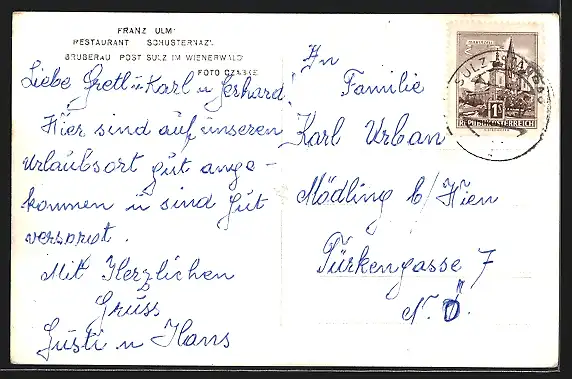 FRANZ ULM
RESTAURANT „SCHUSTERNAZ“
GRUBERAU POST SULZ IM WIENERWALD
FOTO
Liebe Gretl u Karl u Gerhard!
Hier sind auf unseren
Urlaubsort gut ange-
kommen u sind gut
versorgt.
Mit Herzlichen
Grüss
Gusti u Hans
An
Familie
Karl Urban
Mödling b/Wien
Türkengasse 7
N.Ö.
REPUBLIK ÖSTERREICH
SULZ